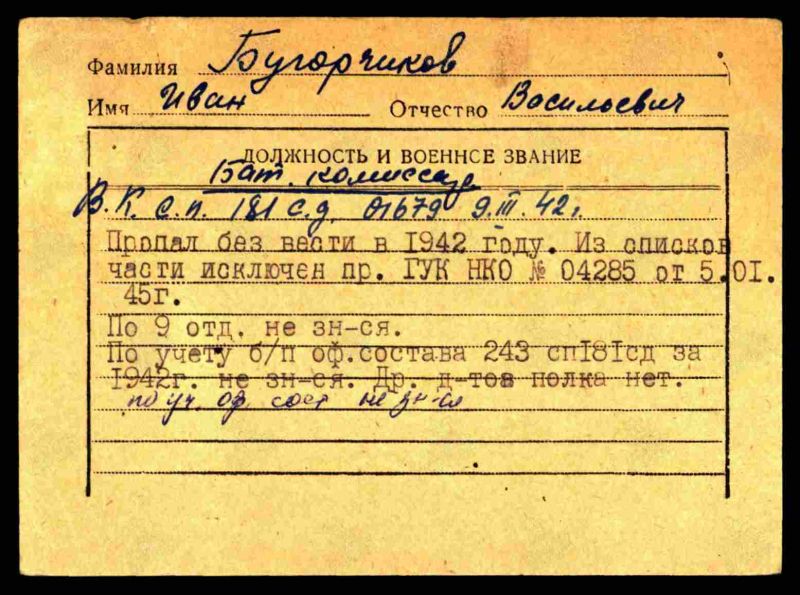 Фамилия Бугорчиков
Имя Иван Отчество Васильевич
ДОЛЖНОСТЬ И ВОЕННСЕ ЗВАНИЕ
Бат. комиссар
В.К. с.п. 181 с.д. 01679 9.III.42г.
Пропал без вести в 1942 году. Из списков
части исключен пр. ГУК НКО № 04285 от 5.01.
45г.
По 9 отд. не зн-ся.
По учету б/п оф.состава 243 сп181сд за
1942г. не зн-ся. Др. д-тов полка нет.
по уч. оф. сост не зн-ся